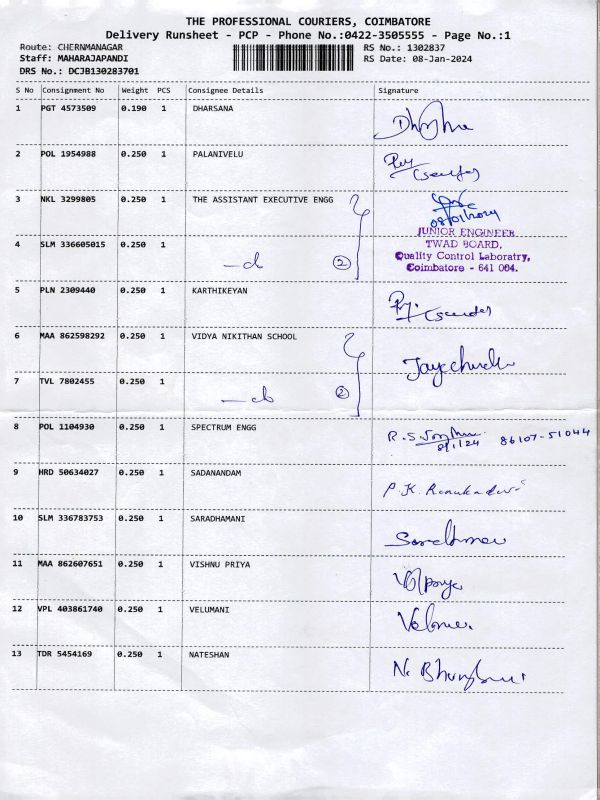 THE PROFESSIONAL COURIERS, COIMBATORE
Delivery Runsheet - PCP - Phone No.:0422-3505555 - Page No.:1
Route: CHERNMANAGAR RS No.: 1302837
Staff: MAHARAJAPANDI RS Date: 08-Jan-2024
DRS No.: DCJB130283701
S No Consignment No Weight PCS Consignee Details Signature
1 PGT 4573509 0.190 1 DHARSANA
2 POL 1954988 0.250 1 PALANIVELU
3 NKL 3299805 0.250 1 THE ASSISTANT EXECUTIVE ENGG
08/01/2024
JUNIOR ENGINEER
4 SLM 336605015 0.250 1 TWAD BOARD,
Quality Control Laboratry,
2 Coimbatore - 641 004.
5 PLN 2309440 0.250 1 KARTHIKEYAN
6 MAA 862598292 0.250 1 VIDYA NIKITHAN SCHOOL
7 TVL 7802455 0.250 1
2
8 POL 1104930 0.250 1 SPECTRUM ENGG R.S. 86107-51044
8/1/24
9 HRD 50634027 0.250 1 SADANANDAM
P.K.
10 SLM 336783753 0.250 1 SARADHAMANI
11 MAA 862607651 0.250 1 VISHNU PRIYA
12 VPL 403861740 0.250 1 VELUMANI
13 TDR 5454169 0.250 1 NATESHAN